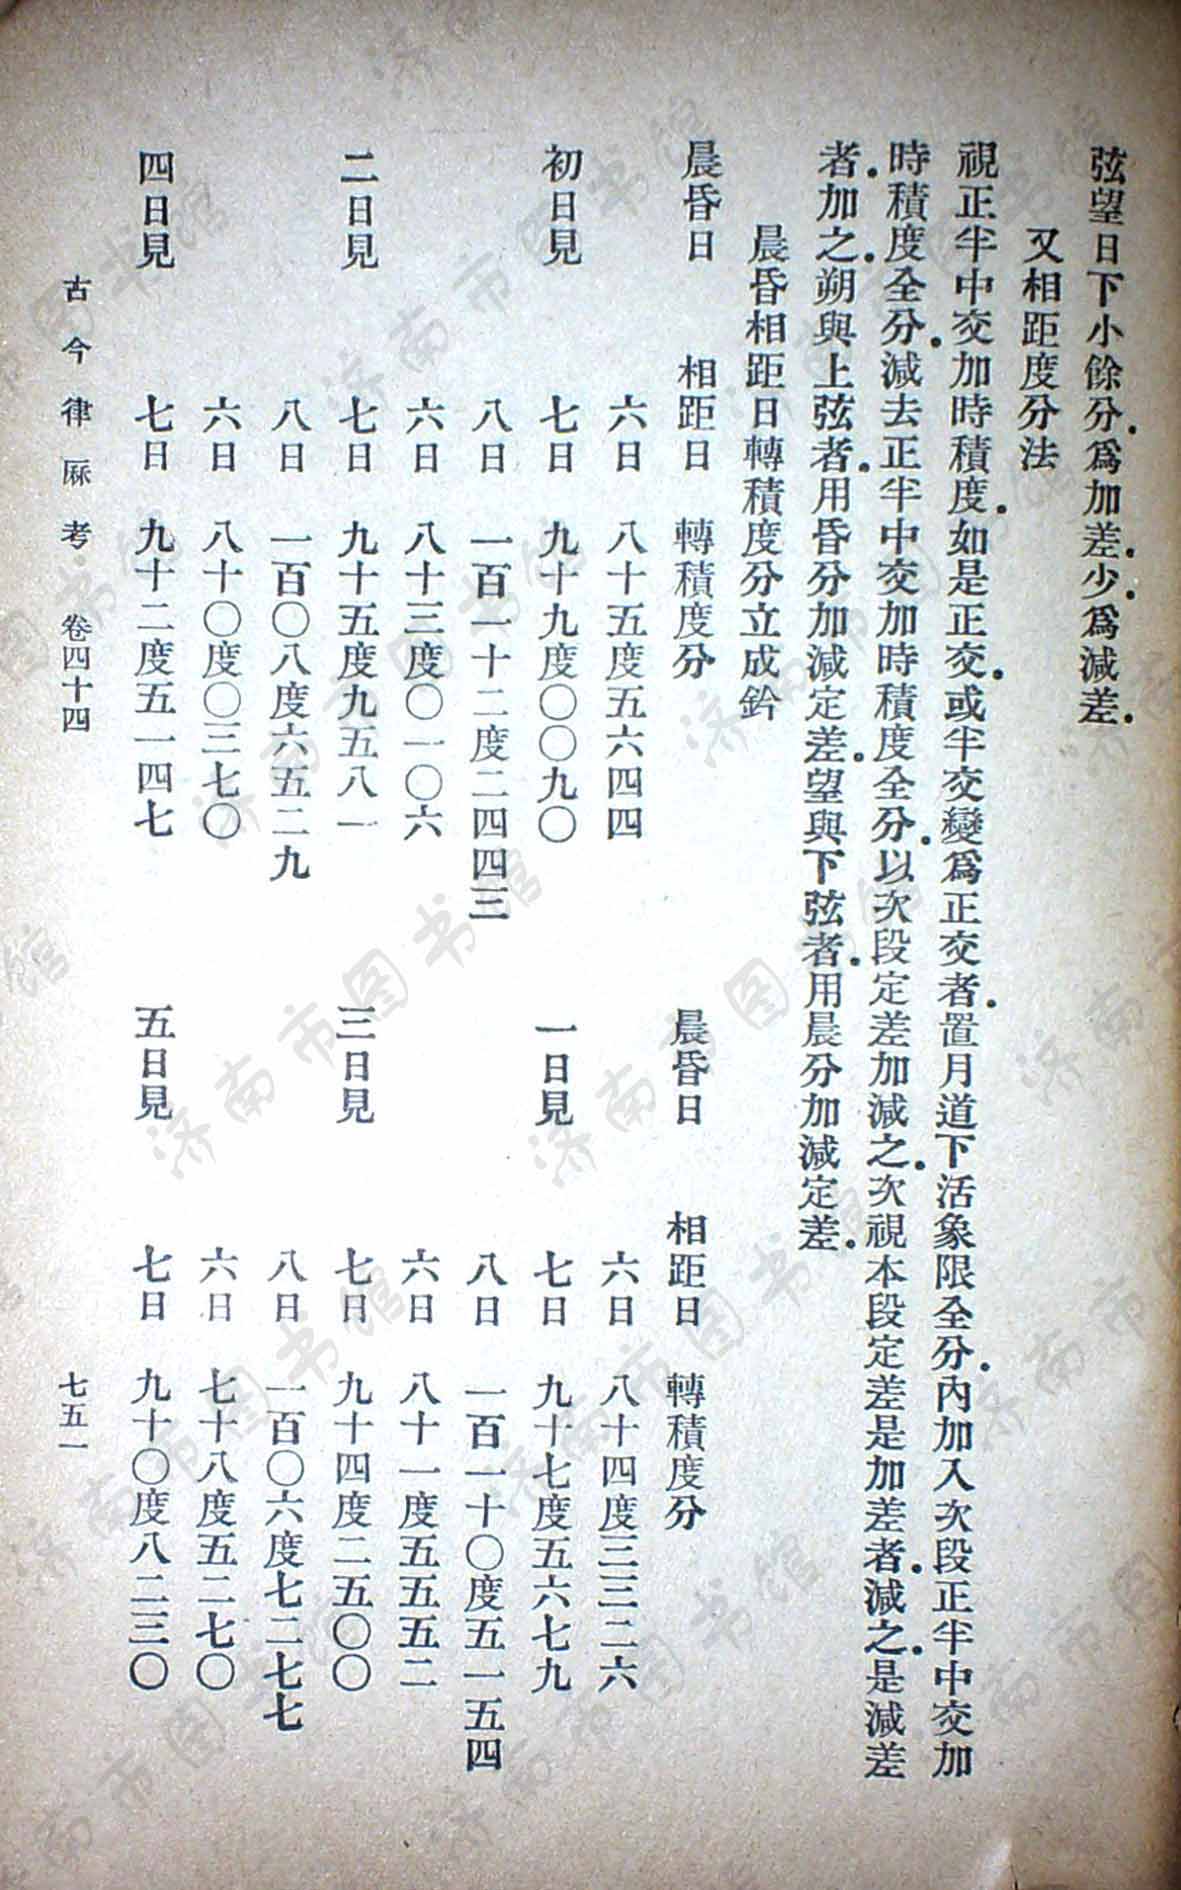 弦望日下小餘分。爲加差。少。爲減差。
又相距度分法
視正半中交加時積度。如是正交。或半交變爲正交者。置月道下活象限全分。內加入次段正半中交加
時積度全分。減去正半中交加時積度全分。以次段定差加減之。次視本段定差是加差者。減之。是減差
者。加之。朔與上弦者。用昏分加減定差。望與下弦者。用晨分加減定差。
晨昏相距日轉積度分立成鈐
晨昏日 相距日 轉積度分 晨昏日 相距日 轉積度分
六日 八十五度五六四四 六日 八十四度三三二六
初日見 七日 九十九度〇〇九〇 一日見 七日 九十七度五六七九
八日 一百一十二度二四四三 八日 一百一十〇度五一五四
六日 八十三度〇一〇六 六日 八十一度五五五二
二日見 七日 九十五度九五八一 三日見 七日 九十四度二五〇〇
八日 一百〇八度六五二九 八日 一百〇六度七二七七
六日 八十〇度〇三七〇 六日 七十八度五二七〇
四日見 七日 九十二度五一四七 五日見 七日 九十〇度八二三〇
古今律厤考 卷四十四 七五一
济南市图书馆